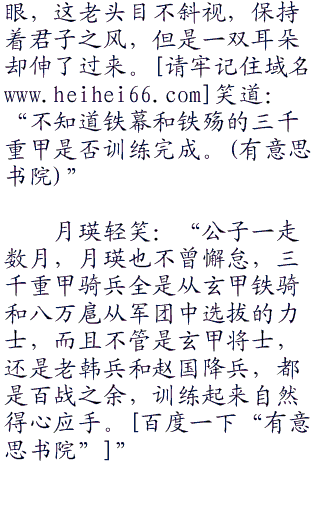 眼，这老头目不斜视，保持
着君子之风，但是一双耳朵
却伸了过来。[请牢记住域名
www.heihei66.com]笑道：
“不知道铁幕和铁殇的三千
重甲是否训练完成。(有意思
书院)”
月瑛轻笑：“公子一走
数月，月瑛也不曾懈怠，三
千重甲骑兵全是从玄甲铁骑
和八万扈从军团中选拔的力
士，而且不管是玄甲将士，
还是老韩兵和赵国降兵，都
是百战之余，训练起来自然
得心应手。[百度一下“有意
思书院”]”